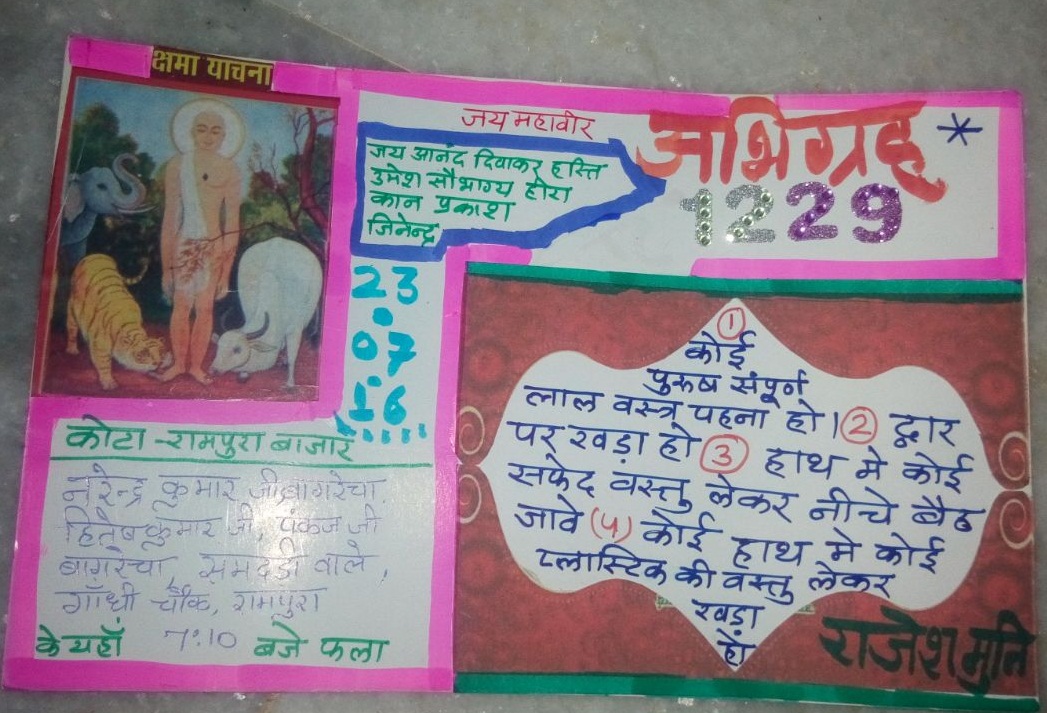 क्षमा याचना
जय महावीर
जय आनंद दिवाकर हस्ति
उमेश सौभाग्य हीरा
कान प्रकाश
जिनेन्द्र
अभिग्रह *
1229
23
07
16
①
कोई
पुरूष संपूर्ण
लाल वस्त्र पहना हो। ② द्वार
पर खड़ा हो ③ हाथ मे कोई
सफेद वस्तु लेकर नीचे बैठ
जावे (4) कोई हाथ मे कोई
प्लास्टिक की वस्तु लेकर
खड़ा
हो
राजेश मुनि
कोटा - रामपुरा बाजार
नरेन्द्र कुमार जी बागरेचा.
हितेष कुमार जी, पंकज जी
बागरेचा, समदड़ी वाले,
गाँधी चौक, रामपुरा
के यहाँ 7:10 बजे फला